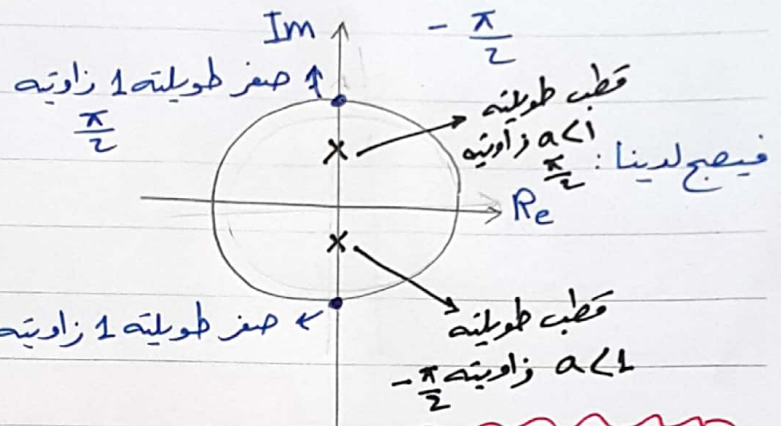 Im
- π/2
صفر طويلته 1 زاويته
π/2
قطب طويلته
a<1 زاويته
π/2
فيصبح لدينا :
Re
قطب طويلته
a<1 زاويته -π/2
صفر طويلته 1 زاويته